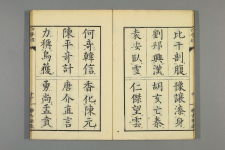 比干剖腹 豫讓漆身
劉邦興漢 胡亥亡秦
袁安臥雪 仁傑望雲
何奇韓信 香化陳元
陳平奇計 唐介直言
力稱烏獲 勇尚孟賁